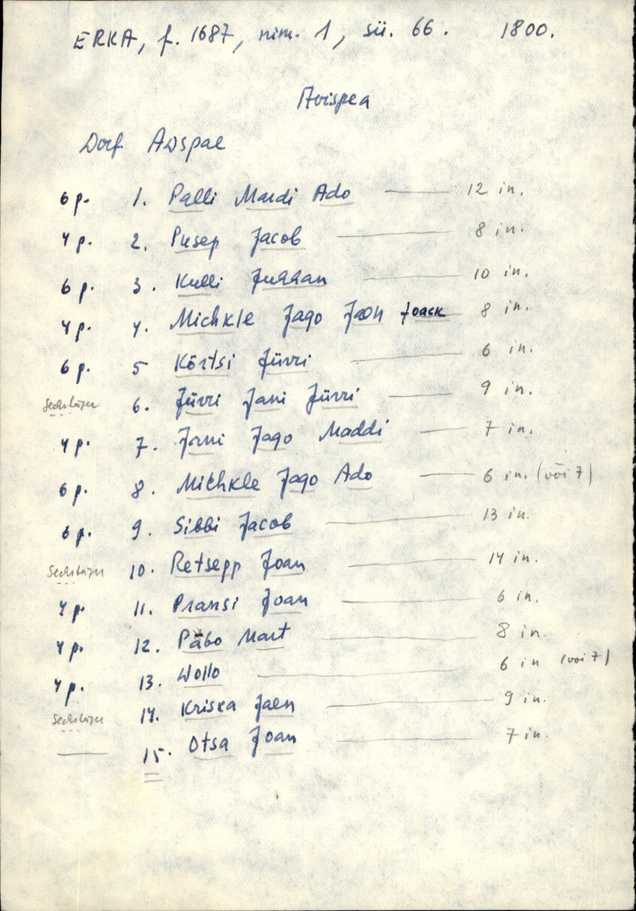 ERKA, f. 1687, nim. 1, sü. 66. 1800.
Avispea
Dorf Awspae
6 p. 1. Palli Mardi Ado 12 in.
4 p. 2. Pusep Jacob 8 in.
6 p. 3. Kulli Juhhan 10 in.
4 p. 4. Michkle Jago Jaon Joack 8 in.
6 p. 5 Körtsi Jürri 6 in.
6. Jürri Jani Jürri 9 in.
4 p. 7. Jani Jago Maddi 7 in.
6 p. 8. Michkle Jago Ado 6 in. (või 7)
6 p. 9. Sibbi Jacob 13 in.
10. Retsepp Joan 14 in.
4 p. 11. Pransi Joan 6 in.
4 p. 12. Päbo Mart 8 in.
4 p. 13. Wollo 6 in (või 7)
14. Kriska Jaen 9 in.
15. Otsa Joan 7 in.